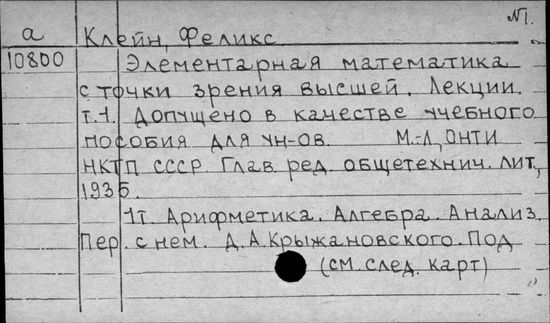 №1.
а Клейн, Феликс
10800 Элементарная математика
с точки зрения высшей. Лекции.
т.1. Допущено в качестве учебного
пособия для ун-ов. М.-Л, ОНТИ
НКТП СССР. Глав. ред. общетехнич. лит,
1935.
1т. Арифметика. Алгебра. Анализ.
Пер. с нем. Д.А.Крыжановского. Под
(см. след. карт)